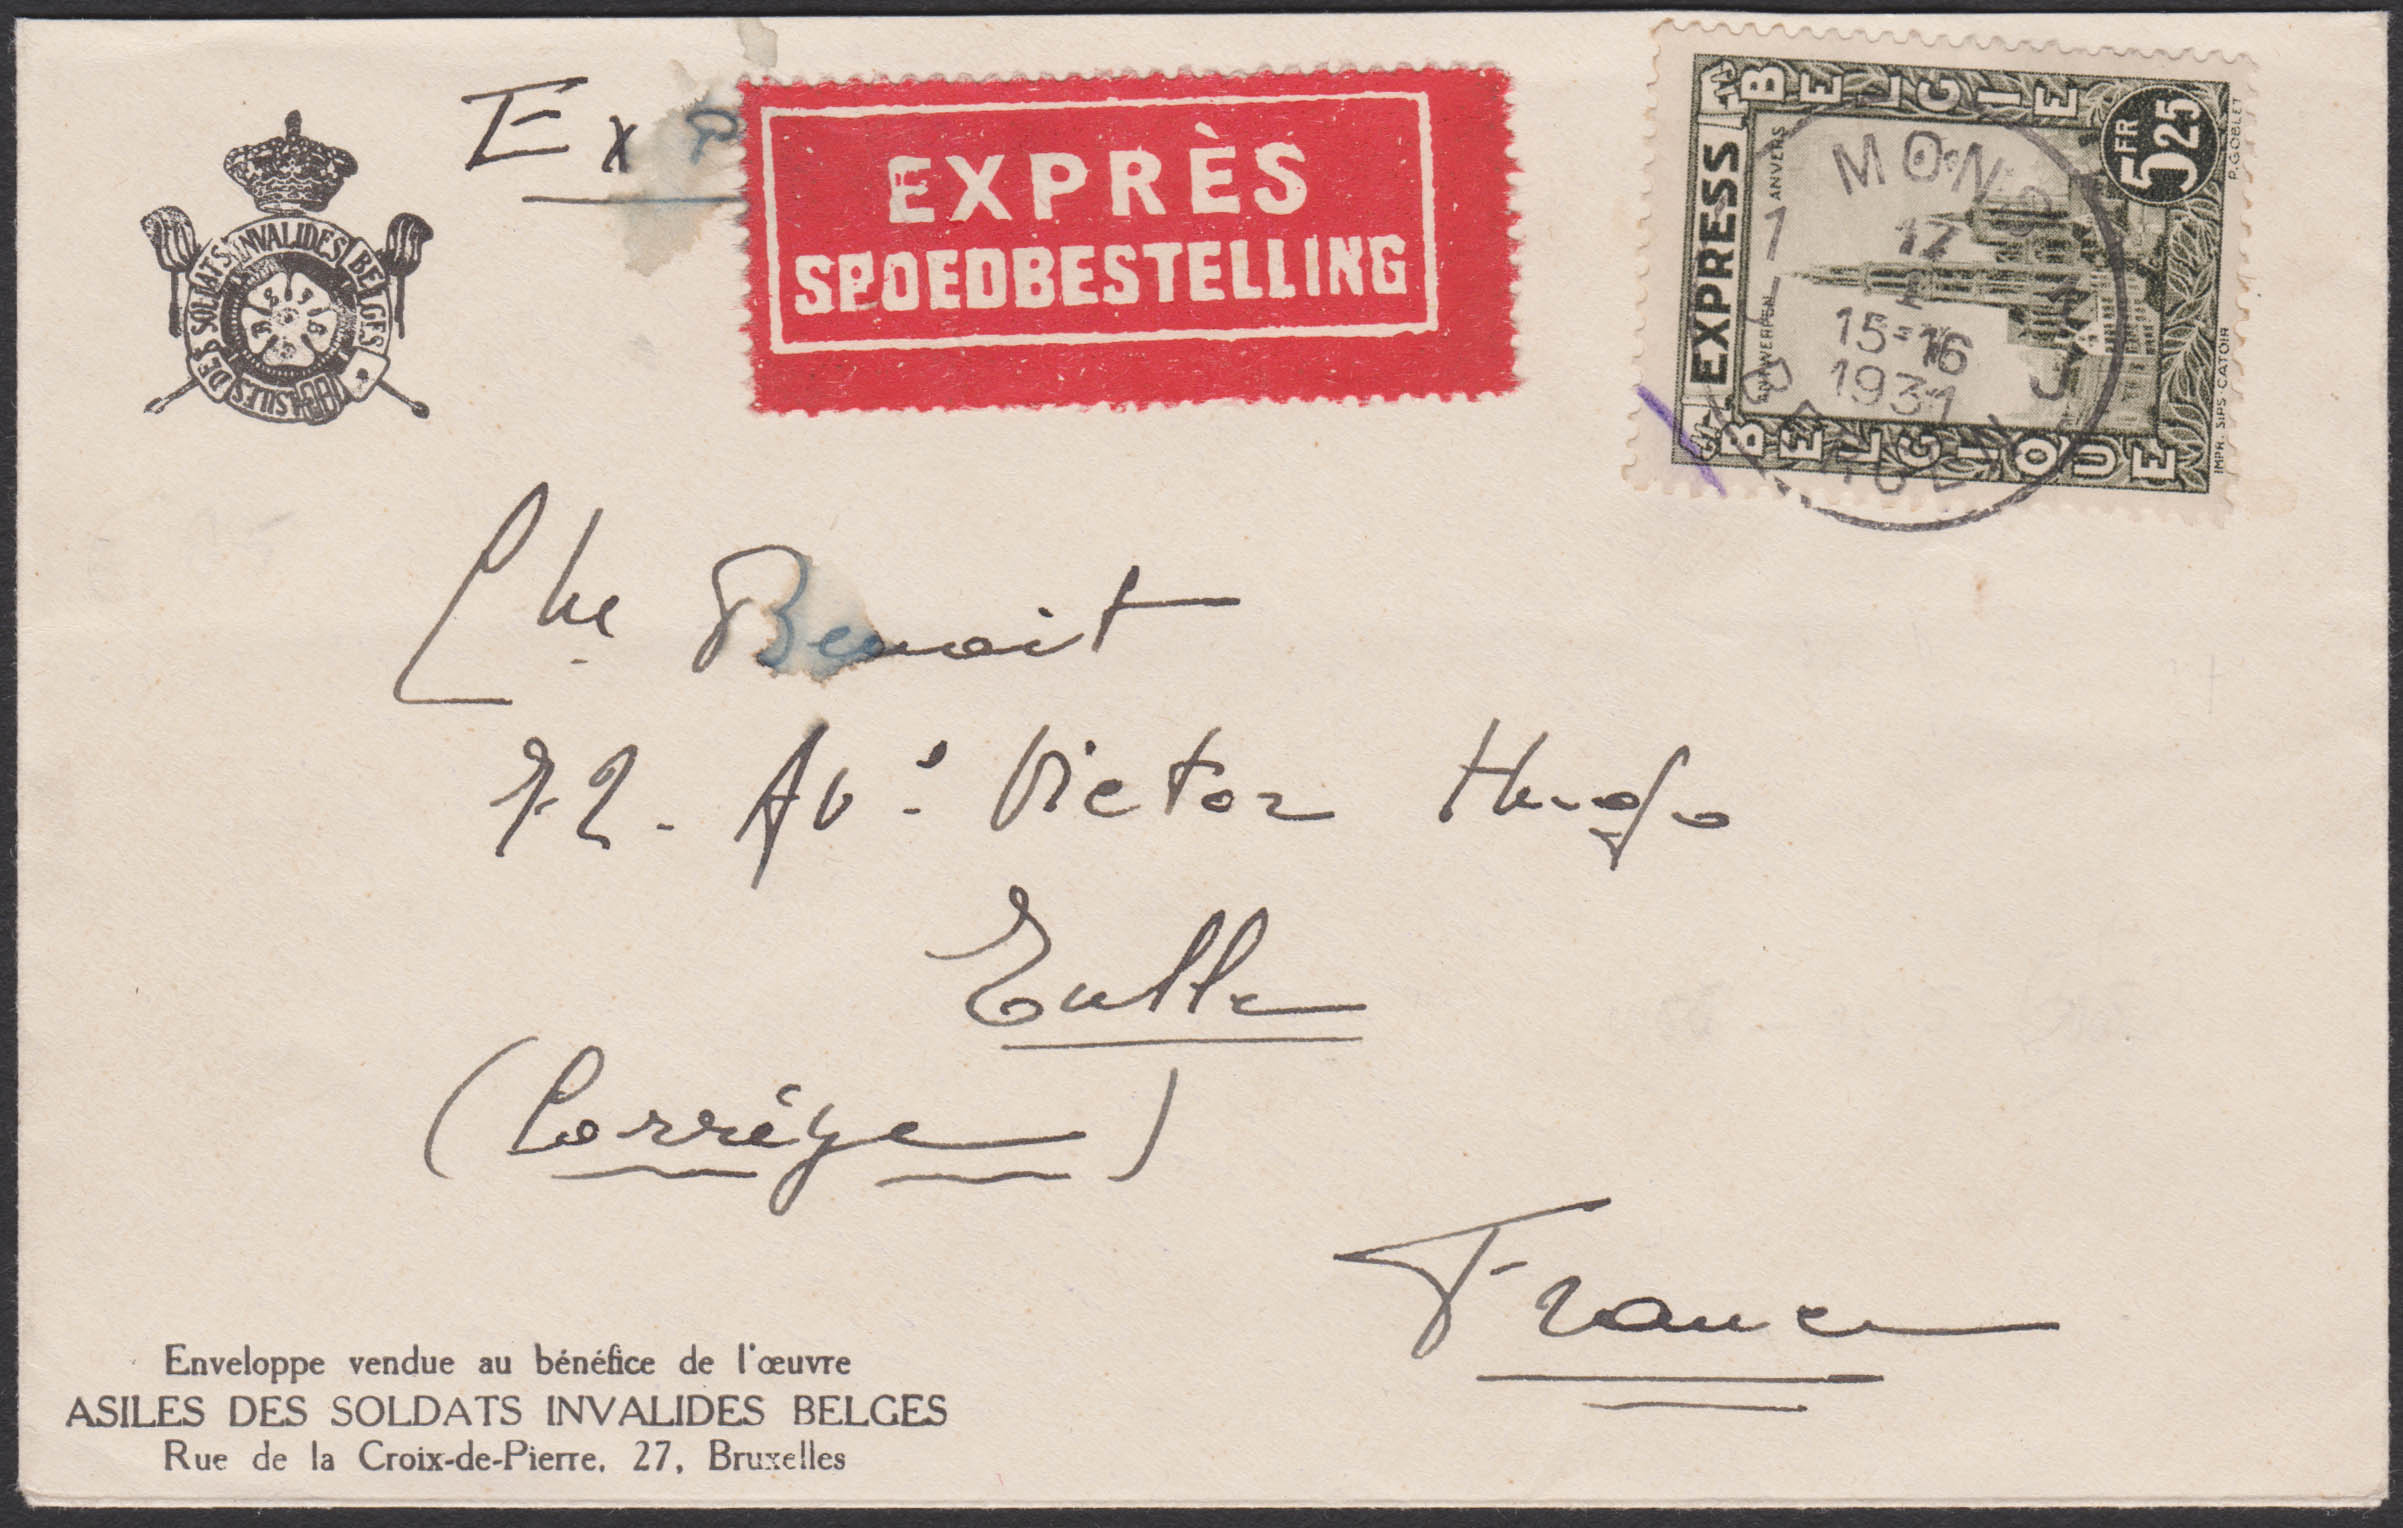 Exp
EXPRÈS
SPOEDBESTELLING
ASILES DES SOLDATS INVALIDES BELGES
BELGIE
EXPRESS
ANTWERPEN ANVERS
5 FR 25
BELGIQUE
P. GOBLET
IMPR. SIPS CATOIR
MONS
17
15-16
1931
BERGEN
Che Benoit
72. Avé Victor Hugo
Tulle
(Corrége)
France
Enveloppe vendue au bénéfice de l'œuvre
ASILES DES SOLDATS INVALIDES BELGES
Rue de la Croix-de-Pierre, 27, Bruxelles